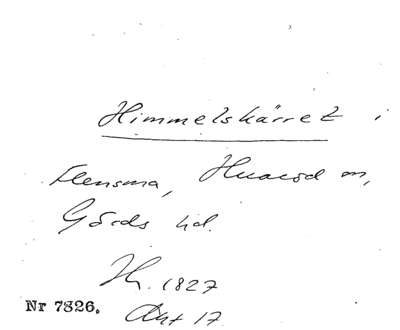 Himmelskärret i
Flensma, Huaröd sn,
Gärds hd.
Hs. 1827
Nr 7326. Akt 17